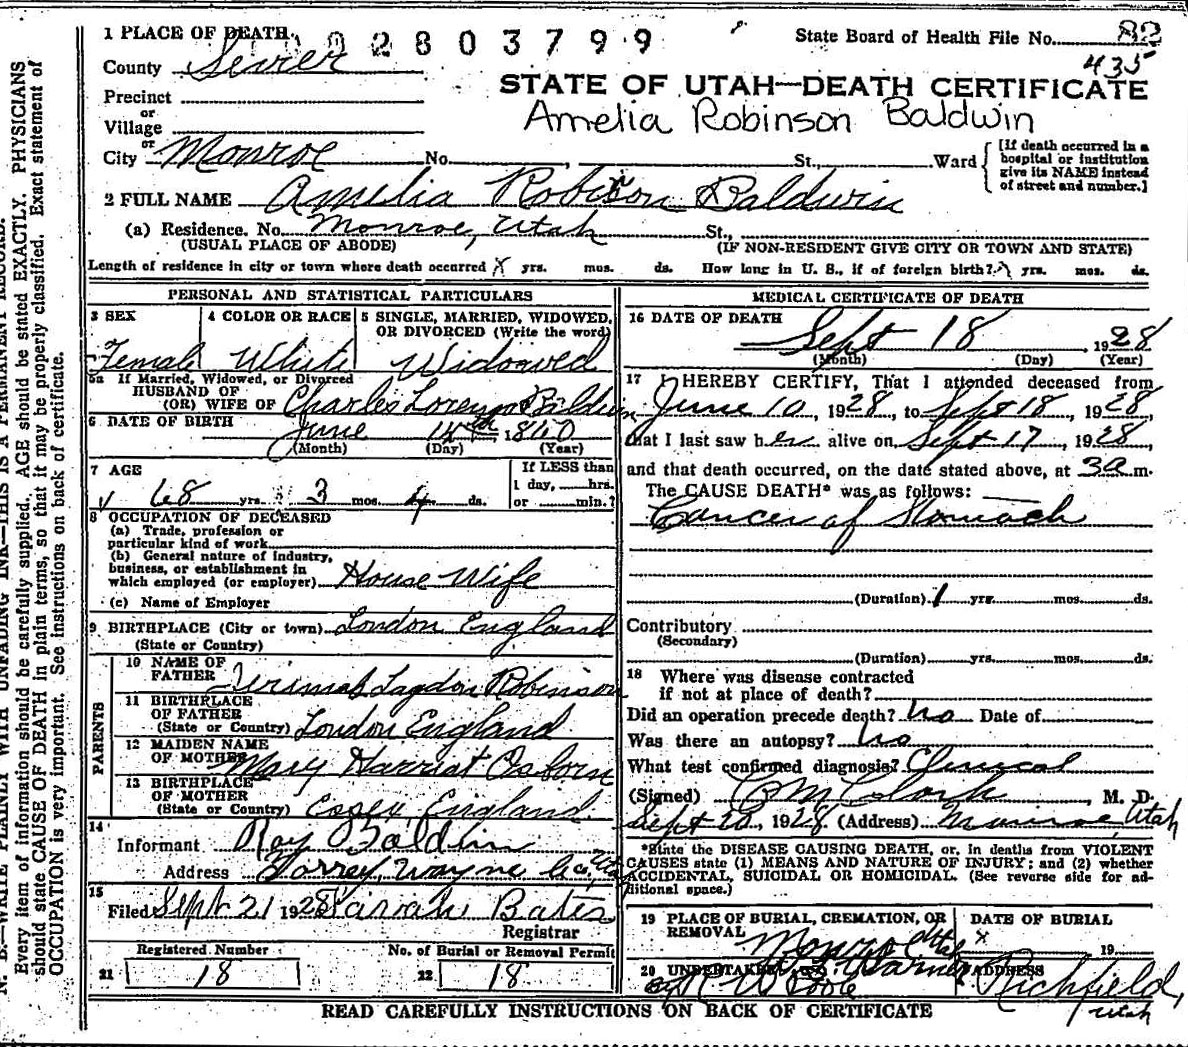 1 PLACE OF DEATH
2803799
State Board of Health File No. 82
435
County Sevier
STATE OF UTAH—DEATH CERTIFICATE
Precinct
or
Village
Amelia Robinson Baldwin
or
City Monroe No. , St., Ward
[If death occurred in a hospital or institution give its NAME instead of street and number.]
2 FULL NAME Amelia Robison Baldwin
(a) Residence. No. Monroe, Utah St.,
(USUAL PLACE OF ABODE) (IF NON-RESIDENT GIVE CITY OR TOWN AND STATE)
Length of residence in city or town where death occurred yrs. mos. ds. How long in U. S., if of foreign birth? yrs. mos. ds.
PERSONAL AND STATISTICAL PARTICULARS
3 SEX 4 COLOR OR RACE 5 SINGLE, MARRIED, WIDOWED, OR DIVORCED (Write the word)
Female White Widowed
5a If Married, Widowed, or Divorced
HUSBAND OF
(OR) WIFE OF Charles Lorenzo Baldwin
6 DATE OF BIRTH June 14th 1860
(Month) (Day) (Year)
7 AGE
If LESS than
1 day, hrs.
or min.?
68 yrs. 3 mos. 4 ds.
8 OCCUPATION OF DECEASED
(a) Trade, profession or
particular kind of work
(b) General nature of industry,
business, or establishment in
which employed (or employer) House Wife
(c) Name of Employer
9 BIRTHPLACE (City or town) London England
(State or Country)
PARENTS
10 NAME OF
FATHER Robinson
11 BIRTHPLACE
OF FATHER
(State or Country) London England
12 MAIDEN NAME
OF MOTHER Mary Harriat Osborn
13 BIRTHPLACE
OF MOTHER
(State or Country) Essex, England.
14
Informant Roy Baldwin
Address Torrey, Wayne Co., Utah
15
Filed Sept 21 1928 Sarah Bates
Registrar
Registered Number No. of Burial or Removal Permit
21 18 22 18
MEDICAL CERTIFICATE OF DEATH
16 DATE OF DEATH
Sept 18 1928
(Month) (Day) (Year)
17 I HEREBY CERTIFY, That I attended deceased from
June 10, 1928, to Sept 18, 1928,
that I last saw her alive on Sept 17, 1928,
and that death occurred, on the date stated above, at 3a m.
The CAUSE DEATH* was as follows:
Cancer of Stomach
(Duration) 1 yrs. mos. ds.
Contributory
(Secondary)
(Duration) yrs. mos. ds.
18 Where was disease contracted
if not at place of death?
Did an operation precede death? no Date of
Was there an autopsy? no
What test confirmed diagnosis? Clinical
(Signed) Clark, M. D.
Sept 20, 1928 (Address) Monroe, Utah
*State the DISEASE CAUSING DEATH, or, in deaths from VIOLENT
CAUSES state (1) MEANS AND NATURE OF INJURY; and (2) whether
ACCIDENTAL, SUICIDAL OR HOMICIDAL. (See reverse side for additional space.)
19 PLACE OF BURIAL, CREMATION, OR REMOVAL DATE OF BURIAL
Monroe Utah 19
20 UNDERTAKER ADDRESS
Richfield, Utah
READ CAREFULLY INSTRUCTIONS ON BACK OF CERTIFICATE
N. B.—WRITE PLAINLY WITH UNFADING INK—THIS IS A PERMANENT RECORD.
Every item of information should be carefully supplied. AGE should be stated EXACTLY. PHYSICIANS
should state CAUSE OF DEATH in plain terms, so that it may be properly classified. Exact statement of
OCCUPATION is very important. See instructions on back of certificate.